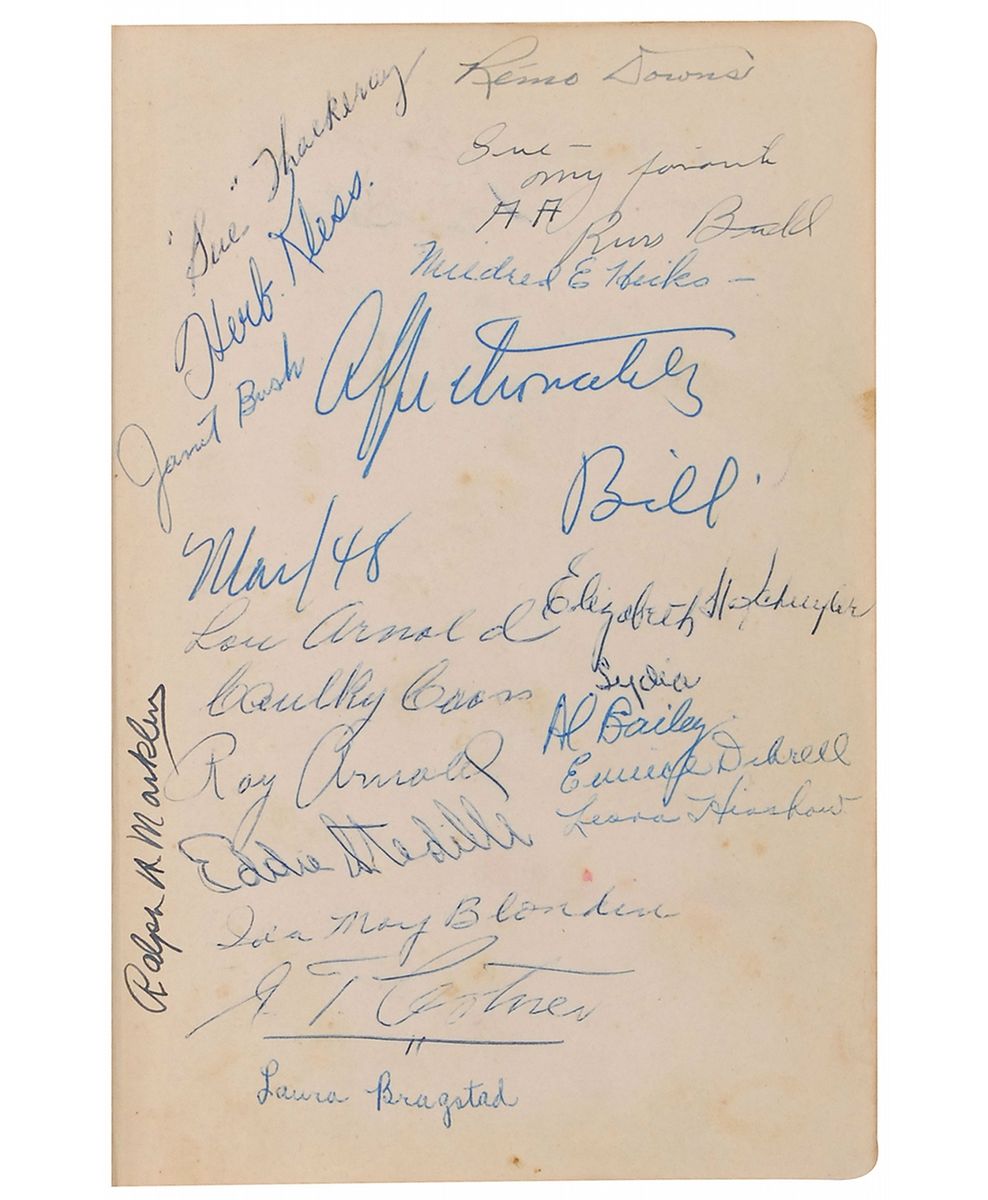 Remo Downs
"Sue" Thackeray
Sue —
my favorite
AA
Russ Budd
Herb. Kless.
Mildred E Hicks —
Janet Bush
Affectionately
Bill.
Mar/48
Elizabeth
Lou Arnold
Lydia
Caulky Coons
Al Bailey
Roy Arnold
Eunice Dibrell
Leora Hinshaw
Eddie Stedille
Ralph Marklen
Ida May Blondin
E. T. Costner
Laura Bragstad